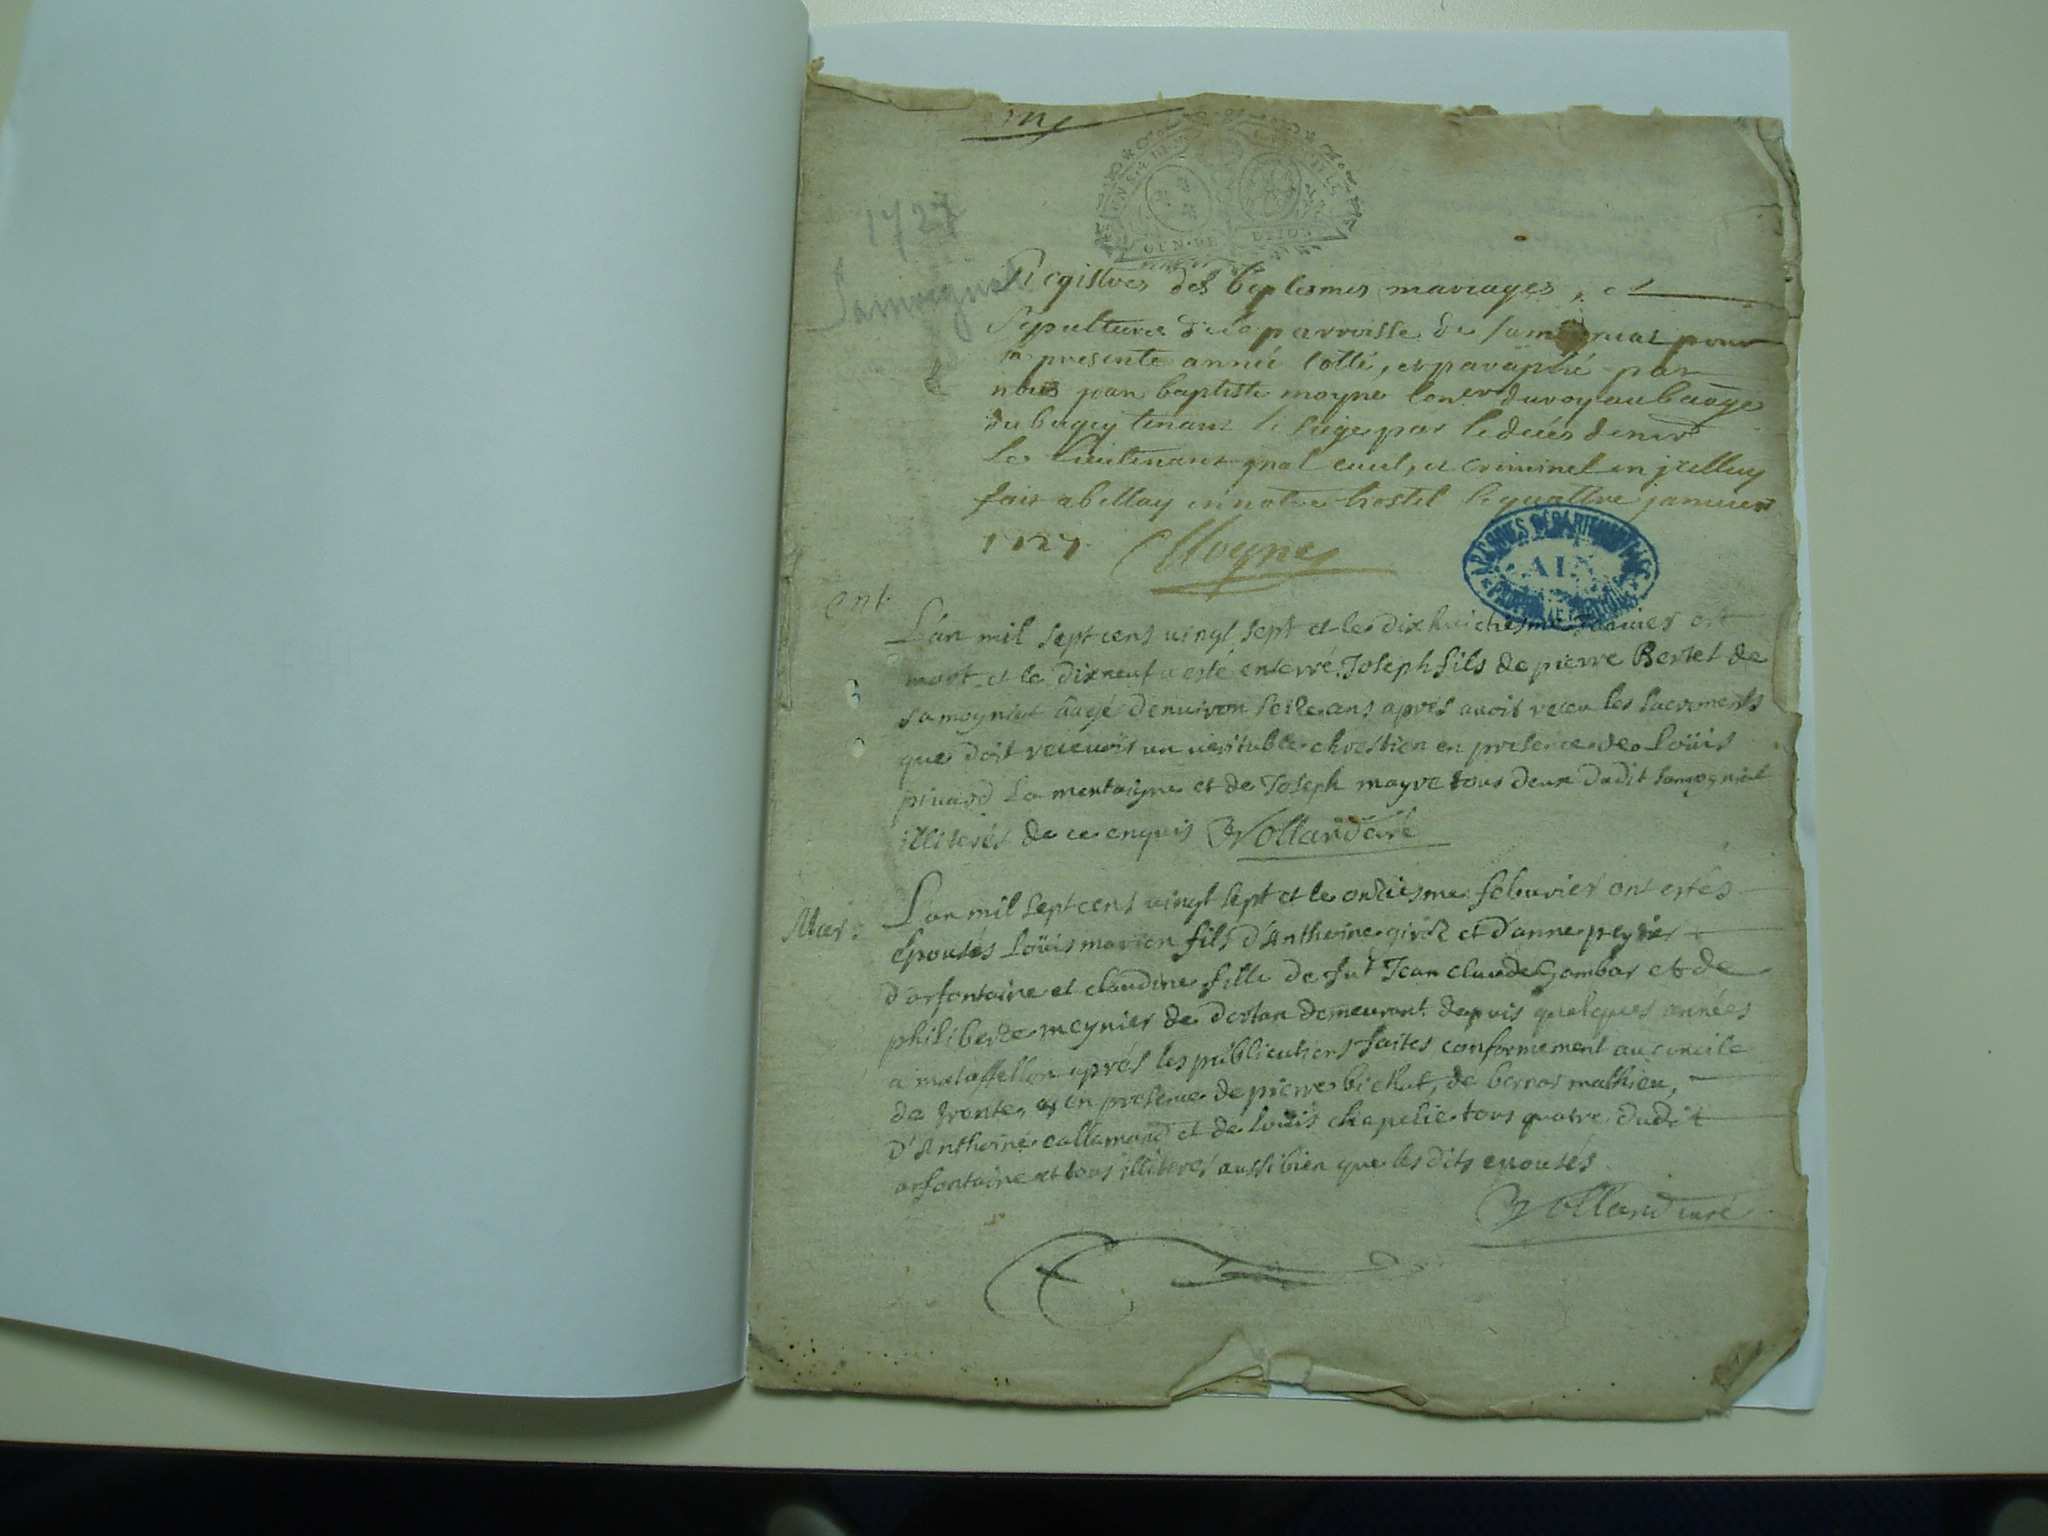 1727
Samognat
GEN. DE LION
Registres des baptesmes mariages, et
sepulture de la parroisse de samognat pour
la presente année cotté, et paraphé par
nous jean baptiste moyne coner du roy au baage
du bugey tenant le siege par le deces de mr
le lieutenant gnal civil, et criminel en jcelluy
fait a bellay en notre hostel le quattre janvier
1727. Moyne
ARCHIVES DÉPARTEMENTALES
AIN
ent.
L'an mil sept cens vingt sept et le dix huictiesme janvier est
mort et le dix neuf a esté enterré Joseph fils de pierre Bertet de
samognat âagé d'environ seize ans aprés avoir receu les sacrements
que doit recevoir un veritable chrestien en presence de Loüis
pivard La montaigne et de Joseph mayre tous deux dudit samognat
illiterés de ce enquis Volland curé
Mar:
L'an mil sept cens vingt sept et le onziesme febuvrier ont estés
épousés Loüis marion fils d'Anthoine girod et d'anne peyrie
d'orfontaine et claudine fille de fut Jean claude Gambar et de
philiberte meynier de dortan demeurant depuis quelques années
a mataffellon aprés les publications faites conformement au concile
de Trente, et en presence de pierre bichat, de bernar mathieu,
D'Anthoine callamard et de Loüis chapelie tous quatre dudit
orfontaine et tous illiteres aussi bien que les dits epousés.
Volland curé